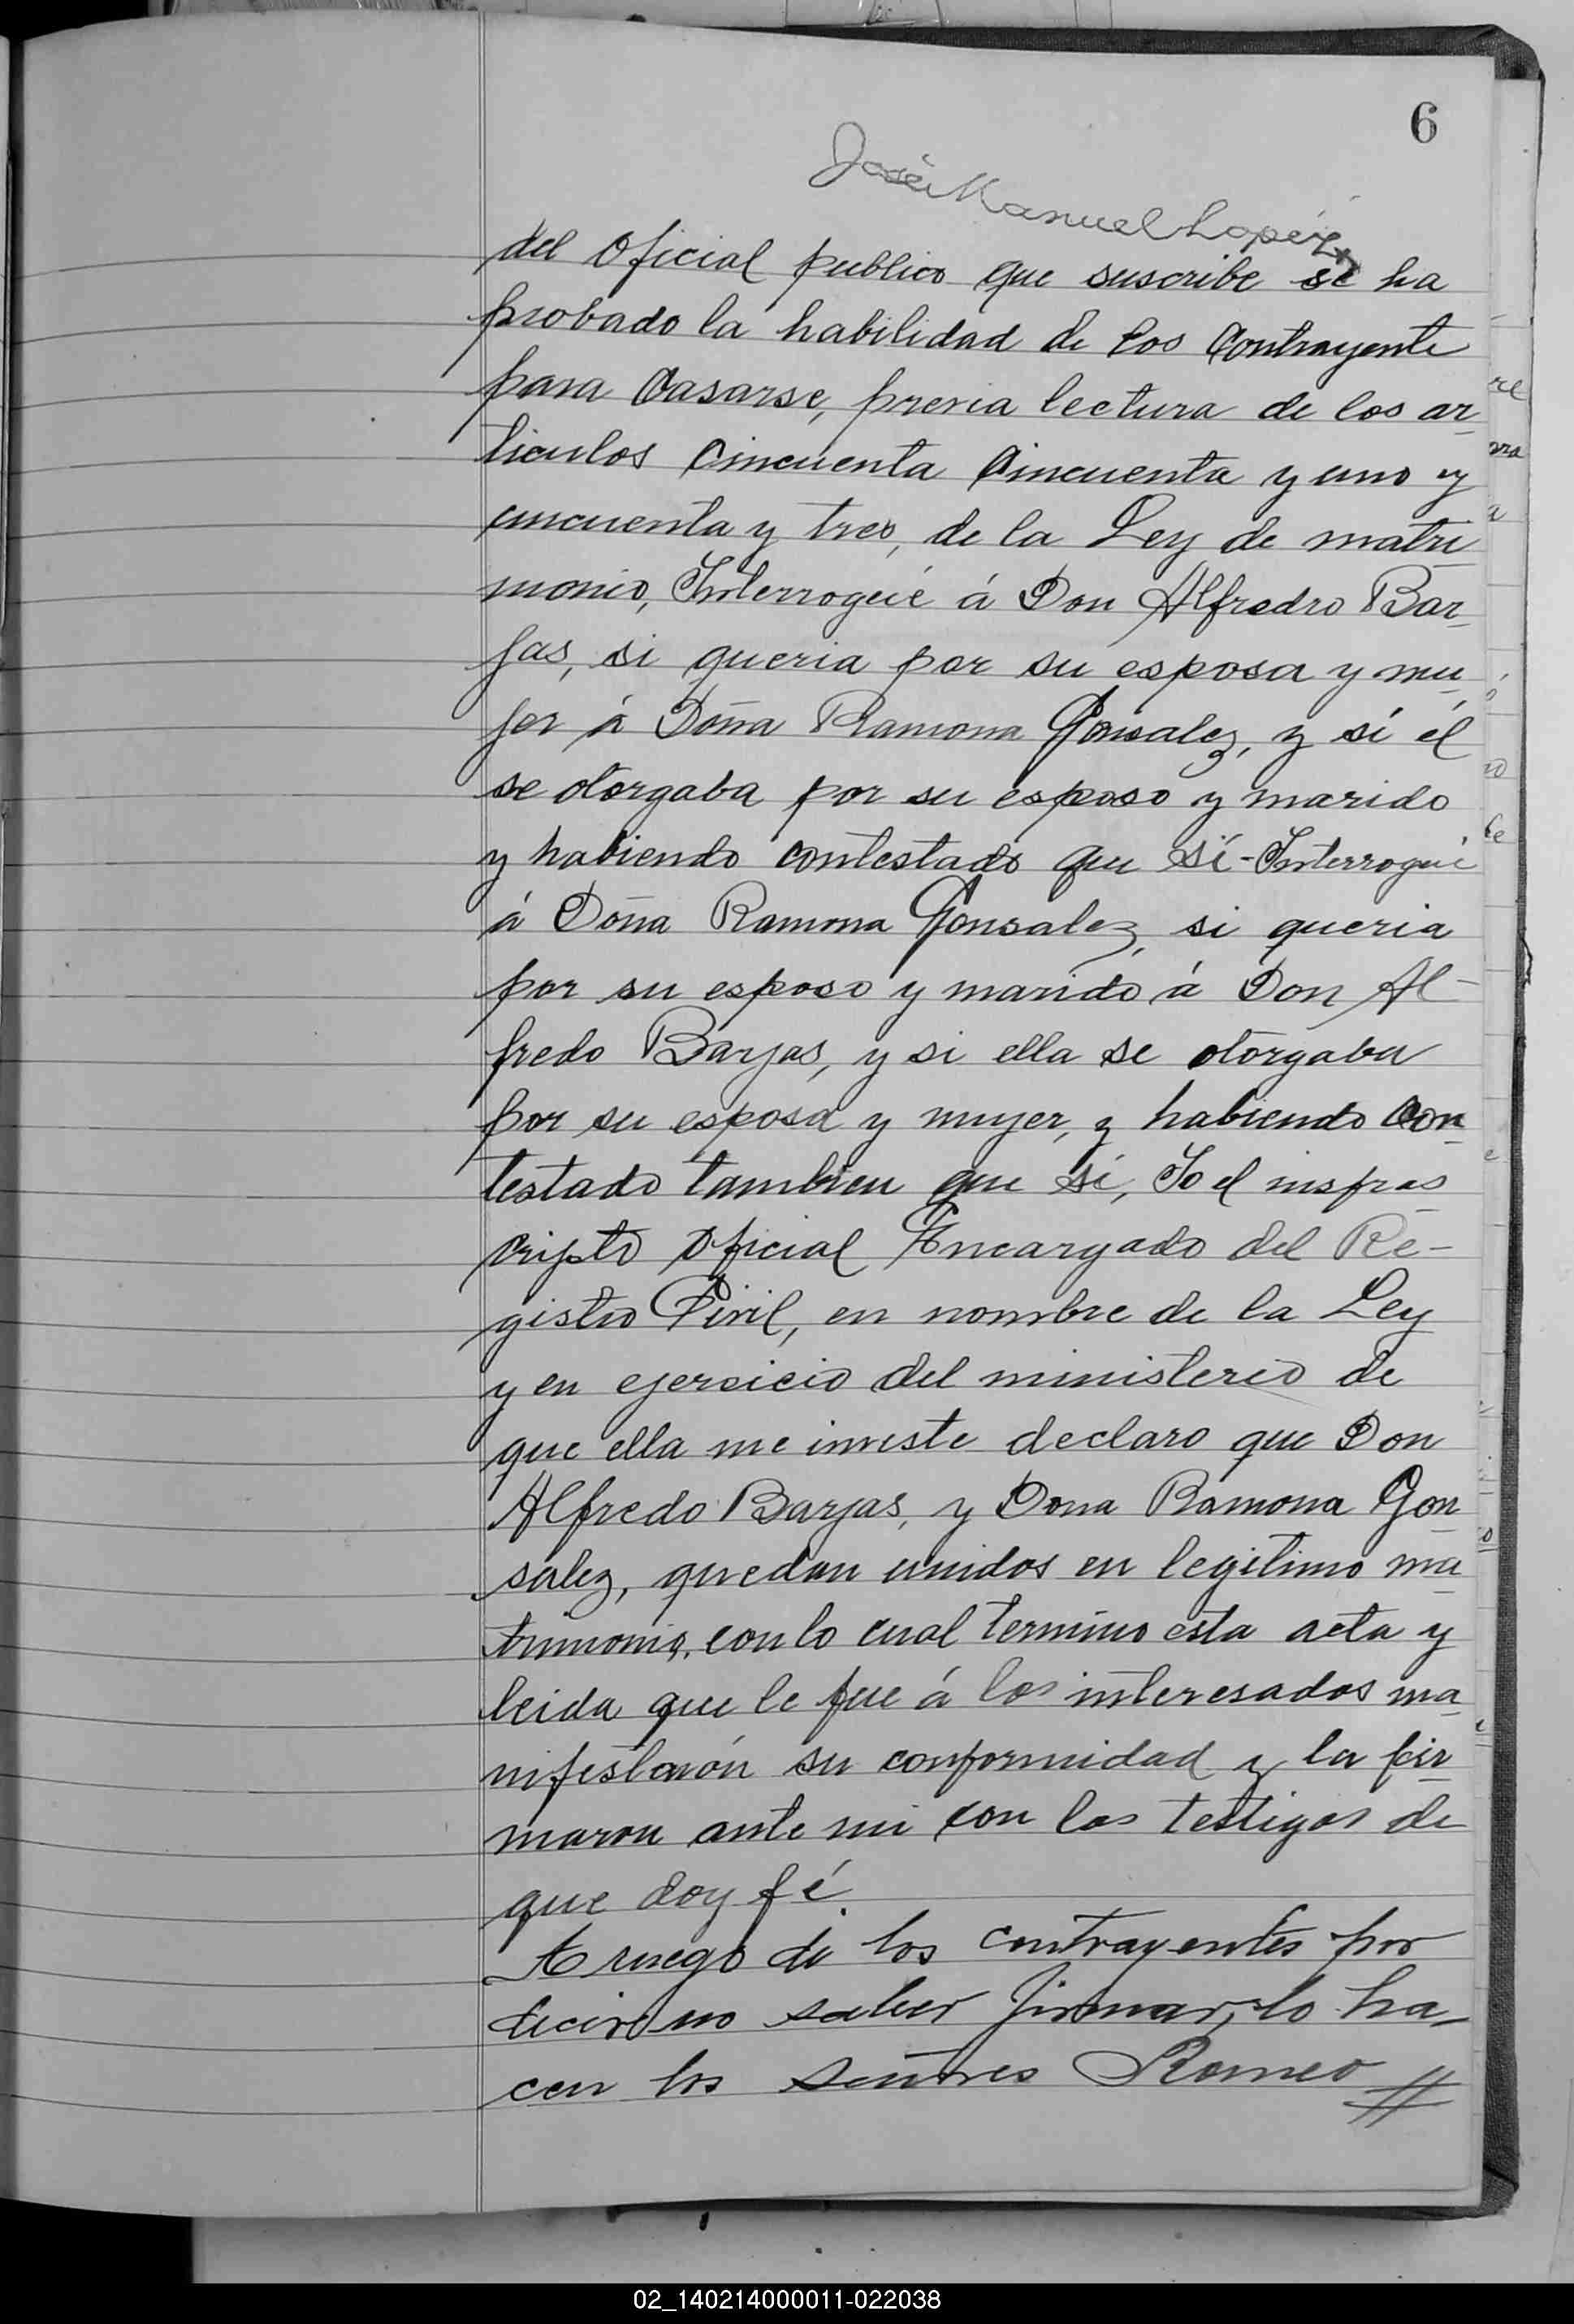 6
José Manuel Lopéz
del Oficial publico que suscribe se ha
probado la habilidad de los Contrayente
para Casarse, previa lectura de los ar
ticulos Cincuenta Cincuenta y uno y
cincuenta y tres, de la Ley de matri
monio, Interrogué á Don Alfredro Bar
jas, si queria por su esposa y mu
jer á Doña Ramona Gonsalez, y si él
se otorgaba por su esposo y marido
y habiendo contestado que si - Interrogué
á Doña Ramona Gonsalez, si queria
por su esposo y marido á Don Al-
fredo Barjas, y si ella se otorgaba
por su esposa y mujer, y habiendo con
testado tambien que si, Yo el insfras
cripto Oficial Encargado del Re-
gistro Civil, en nombre de la Ley
y en ejersicio del ministerio de
que ella me inviste declaro que Don
Alfredo Barjas, y Dona Ramona Gon
salez, quedan unidos en legitimo ma
trimonio, con lo cual termino esta acta y
leida que le fue á los interesados ma
nifestarón su conformidad y la fir
maron ante mi con los testigos de
que doy fé
A ruego de los contrayentes por
decir no saber firmar, lo ha-
cen los señores Romeo //
02_140214000011-022038